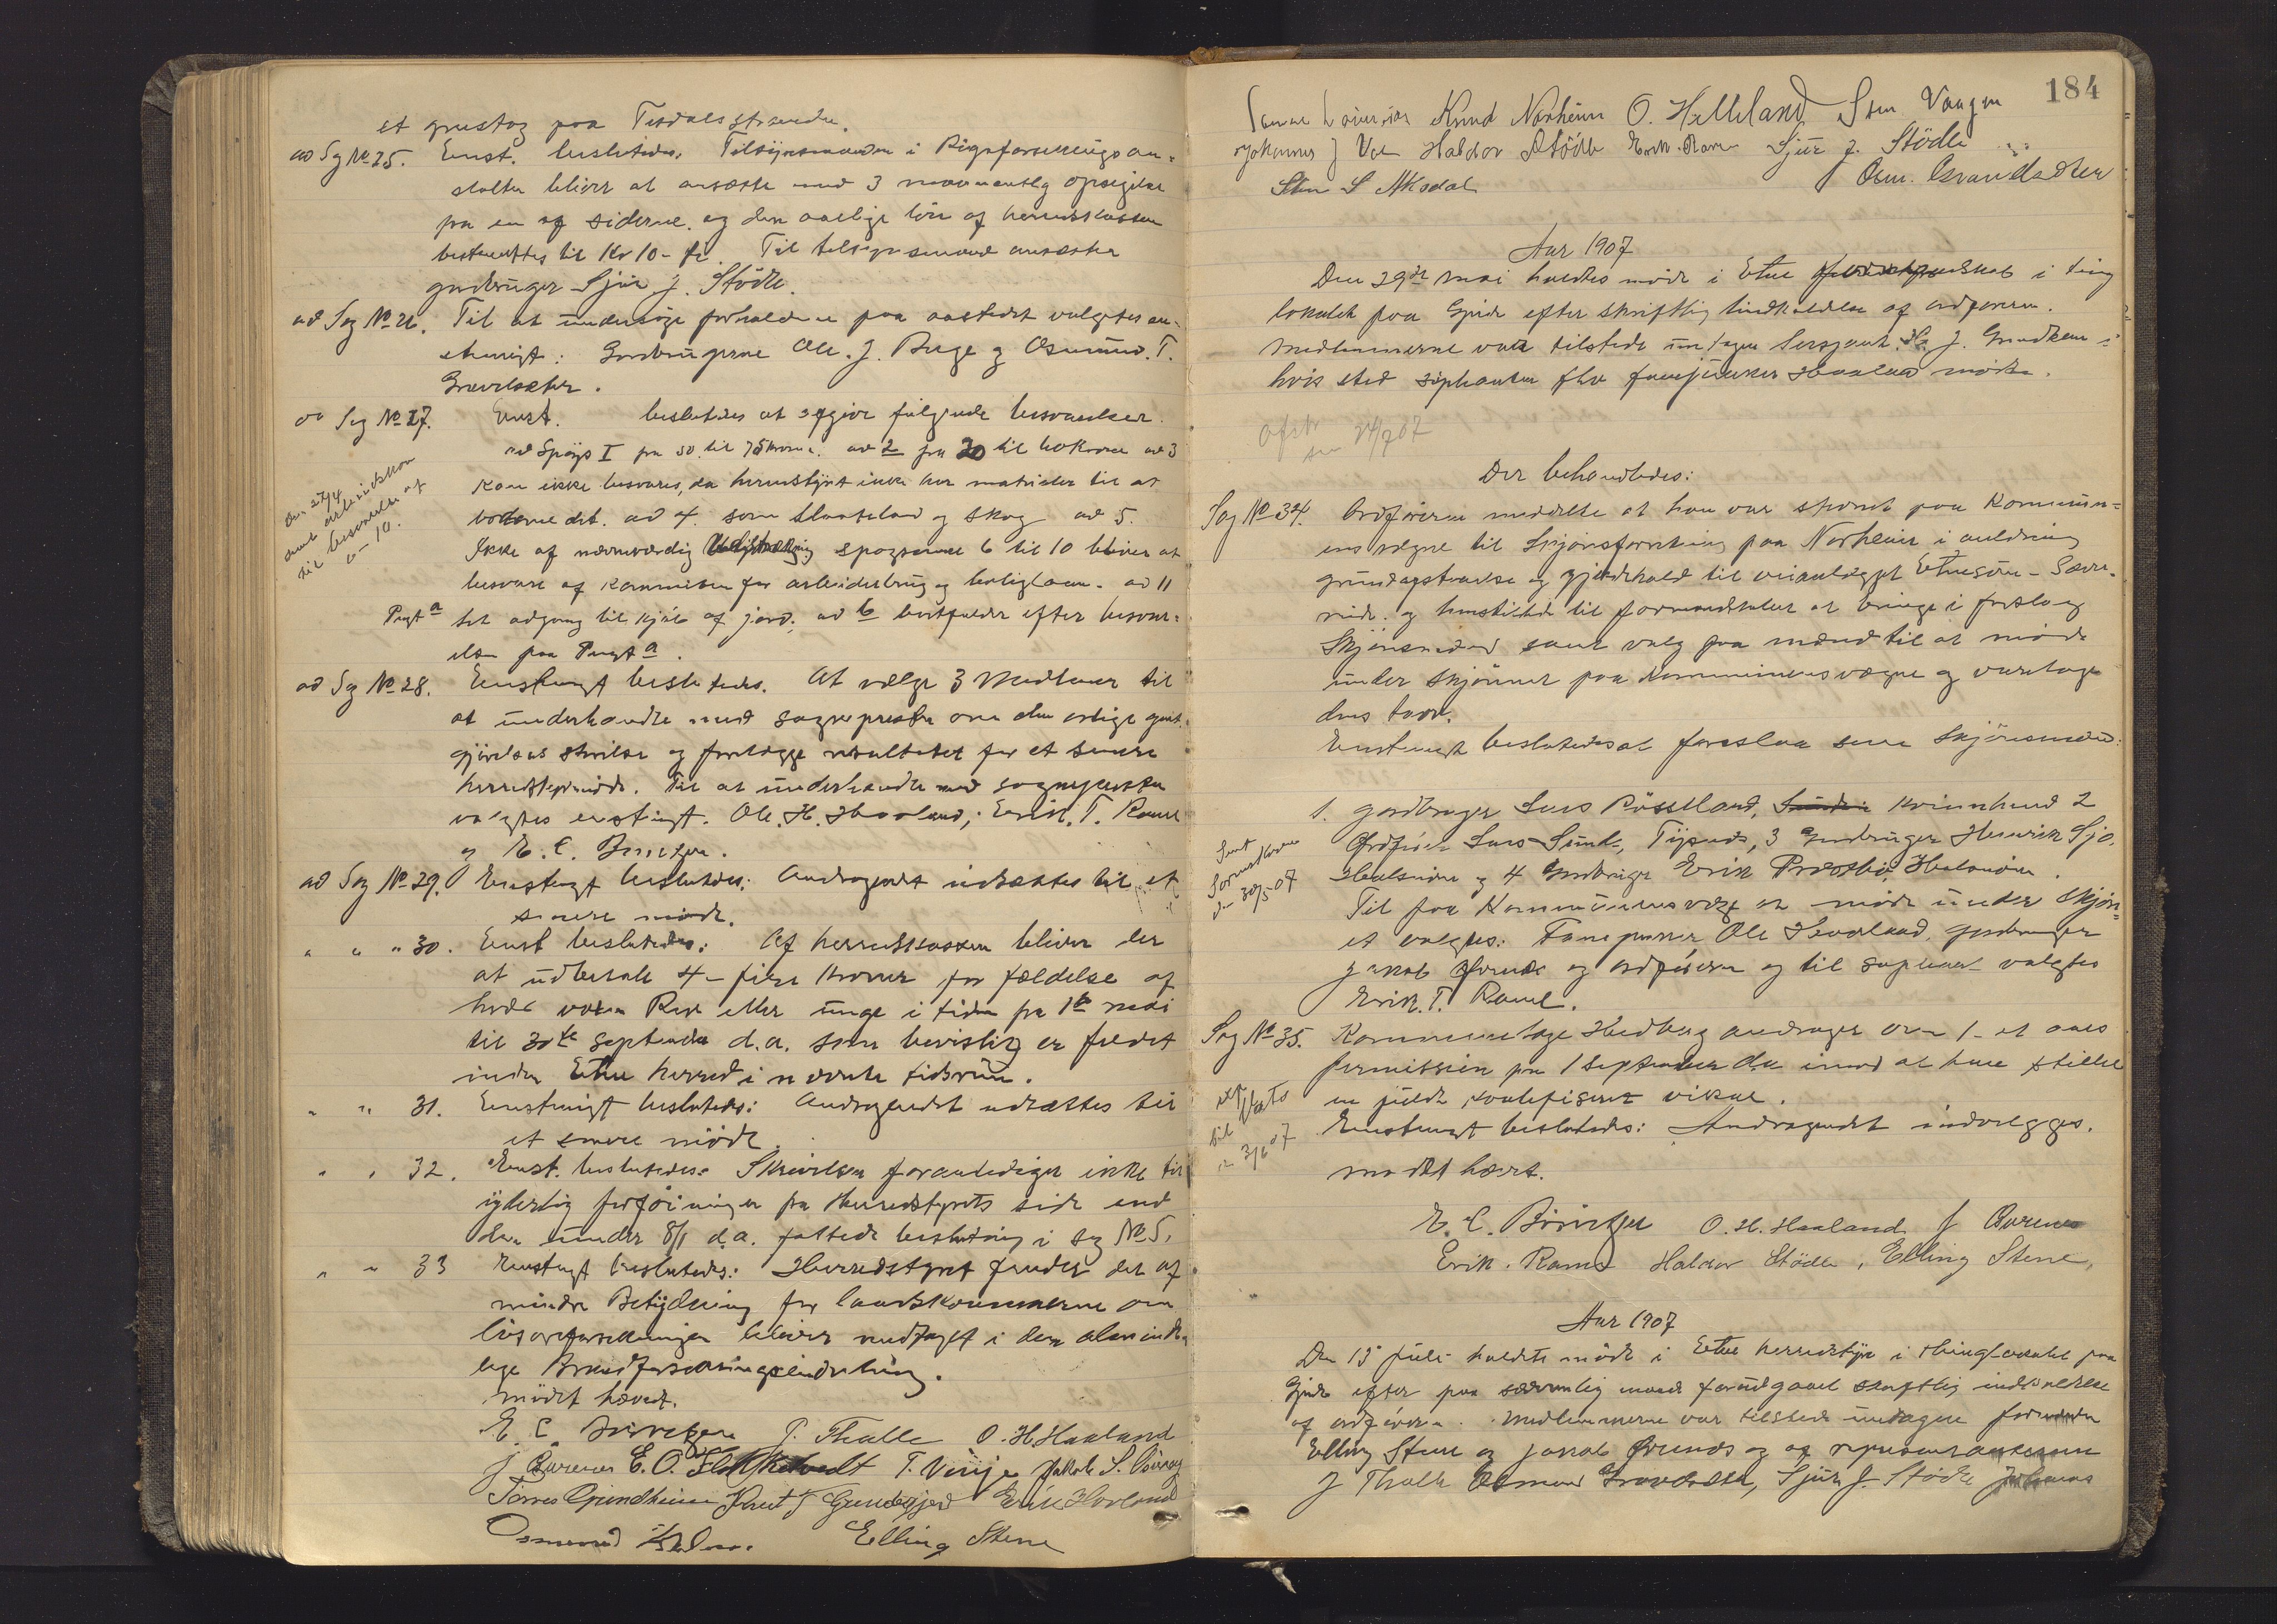 et grustag paa Tesdalsstranden.
ad Sag No 25. Enst. besluttedes: Tilsynsmanden i Rigsforsikringsan-
stalten bliver at ansætte med 3 maaneders opsigelse
fra en af siderne og den aarlige løn af herredskassen
bestemtes til Kr 10 - ti. Til tilsynsmand ansættes
gardbruger Sjur J. Stödle.
ad Sag No 26. Til at undersøge forholdene paa aastedet valgtes en-
stemigt: Gardbrugerne Ole J. Berge og Osmund T.
Gravelsæter.
ad Sag No 27. Enst. besluttedes at afgive følgende besvarelser.
ad Spørgs I fra 50 til 75 kroner. ad 2 fra 20 til 40 kroner ad 3
Kan ikke besvares, da herredstyret ikke har materialer til at
bedømme det. ad 4. som Slaatteland og skog ad 5.
Ikke af nævneværdig spørgsmaal 6 til 10 bliver at
besvare af kommisionen for arbeiderbrug og boliglaan. ad 11
Punkt a let adgang til kjøb af jord, ad b bortfalder efter besvar-
elsen paa Punkt a.
Den 27/4
sendt arbeider
til besvarelse af
6 - 10.
ad Sag No 28. Enstemigt besluttedes. At vælge 3 Medlemmer til
at underhandle med sognepresten om den aarlige godt-
gjørelses størrelse og forelægge resultatet for et senere
herredstyremøde. Til at underhandle med sognepresten
valgtes enstemigt. Ole H. Haaland, Erik T. Rame
og E. C. Börretzen.
ad Sag No 29. Enstemigt besluttedes: Andragendet udsættes til et
senere møde.
" " " 30. Enst besluttedes: Af herredskassen bliver der
at udbetale 4 - fire kroner for fældelse af
hver voksen Ræv eller unge i tiden fra 1ste mai
til 30te september d.a. som bevislig er fældet
inden Etne herred i nævnte tidsrum.
" " 31. Enstemigt besluttedes: Andragendet udsættes til
et senere møde.
" " 32. Enst. besluttedes: Skrivelsen foranlediger ikke til
yderlig forføininger fra Herredstyrets side end
den under 8/1 d.a. fattede beslutning i sag No 5.
" " 33 Enstemigt besluttedes: Herredstyret finder det af
mindre Betydning for landskommunerne om
løsøreforsikringen bliver medtaget i den almindel-
lige Brandforsikringsindretning.
mødet hævet.
E. C. Börretzen J. Thalle O. H. Haaland
J. Börenes E. O. Flokketvedt T. Vinje Jakob S.
Tørres Grindheim Knut J. Erik Hovland
Osmund Elling Stene
184
Knud Norheim O. Helleland Sten Vaagen
Johannes J. Haldor Stödle Erik Rame Sjur J. Stödle
Sten S Mksdal Osm. Gravelsæter
Aar 1907
Den 29de mai holdtes møde i Etne formandskab i ting
lokalet paa Gjerde efter skriftlig indkaldelse af ordføreren.
Medlemmerne var tilstede undtagen Sersjant J. Grindheim i
hvis sted suplanten fhv fanejunker Haaland mødte.
Afskr
sen 24/7 07
Der behandledes:
Sag No 34. Ordføreren meddelte at han var stevnet paa Kommun-
ens vegne til Skjønsforretning paa Norheim i anledning
grundafstaaelse og gjerdehold til veianlægget Etnesjøen - Sævre-
side og henstillede til formandskabet at bringe i forslag
Skjønsmænd samt valg paa mænd til at møde
under skjønnet paa kommunens vegne og varetage
dens tarv.
Enstemigt besluttedes at foreslaa som Skjønsmænd:
1. gardbruger Lars Røsseland, Kvinnherad 2
Ordfører Lars Sunde, Tysnes, 3 Gardbruger Henrik Sjo,
Halsnøen og 4 Gardbruger Erik Præstbø, Halsnøen.
Sendt
Sorenskriveren
d 30/5 07
Til paa Kommunens vegne at møde under skjøn-
et valgtes: Fanejunker Ole Haaland, gardbruger
Jakob Grinde og ordføreren og til suplant valgtes
Erik T. Rame.
Sag No 35. Kommunelæge Hedberg andrager om 1 - et aars
permission fra 1 September d.a. imod at han stiller
en fuldt kvalificeret vikar.
Enstemigt besluttedes: Andragendet indvilges.
3/6 07
mødet hævet.
E. C. Börretzen O. H. Haaland J Börenes
Erik Rame Haldor Stödle, Elling Stene,
Aar 1907
Den 15 juli holdtes møde i Etne herredstyre i thinglokalet paa
Gjerde efter paa sædvanlig maade forudgaaet skriftlig indkaldelse
af ordføreren. Medlemmerne var tilstede undtagen formænderne
Elling Stene og Jakob Grinde og af repræsentanterne
J Thalle Osmund Gravelsæter, Sjur J. Stödle Johannes